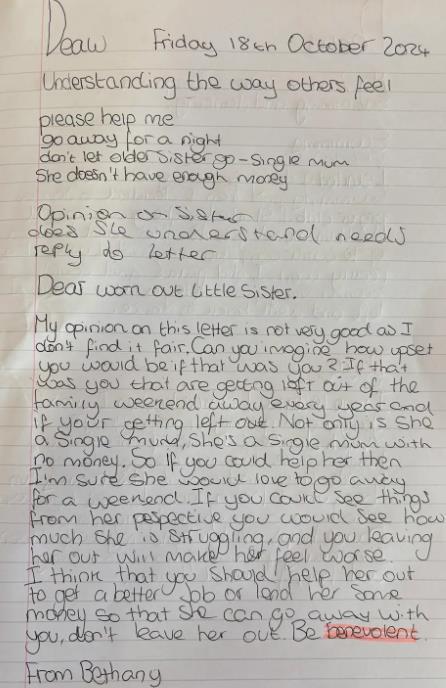 Deaw Friday 18th October 2024
Understanding the way others feel
please help me
go away for a night
don't let older sister go - Single mum
She doesn't have enough money
Opinion on Sister
does She understand needs
reply do letter
Dear worn out Little Sister.
My opinion on this letter is not very good as I
don't find it fair. Can you imagine how upset
you would be if that was you? If that
was you that are getting left out of the
family weekend away every year and
if your getting left out. Not only is She
a Single mum, She's a Single mum with
no money. So if you could help her then
I'm sure She would love to go away
for a weekend. If you could See things
from her pespective you would See how
much She is Struggling, and you leaving
her out will make her feel worse.
I think that you Should help her out
to get a better Job or lend her Some
money So that She can go away with
you, don't leave her out. Be benevolent.
From Bethany